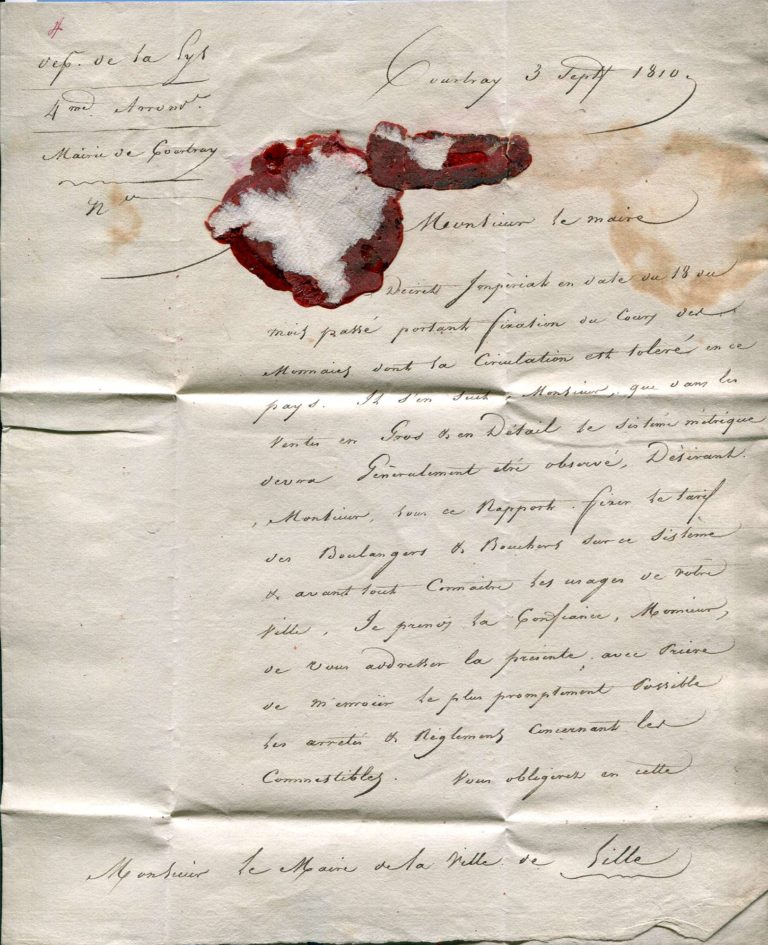 Dep. de la Lys
Courtray 3 Sept 1810.
4me Arrondt.
Mairie de Courtray
No
Monsieur le maire
Décret Impérial en date du 18 du
mois passé portant fixation du Cours des
Monnaies dont la Circulation est toléré en ce
pays. Il s'en suit, Monsieur, que dans les
Ventes en Gros & en Détail le sistème métrique
devra Généralement etre observé, Désirant
, Monsieur, sous ce Rapport fixer le tarif
des Boulangers & Bouchers sur ce sistème
& avant tout Connaitre les usages de votre
Ville, Je prends la Confiance, Monsieur,
de vous addresser la présente avec Prière
de m'envoïer le plus promptement Possible
les arretés & Réglemens Concernant les
Commestibles. Vous obligerez en cette
Monsieur le Maire de la Ville de Lille